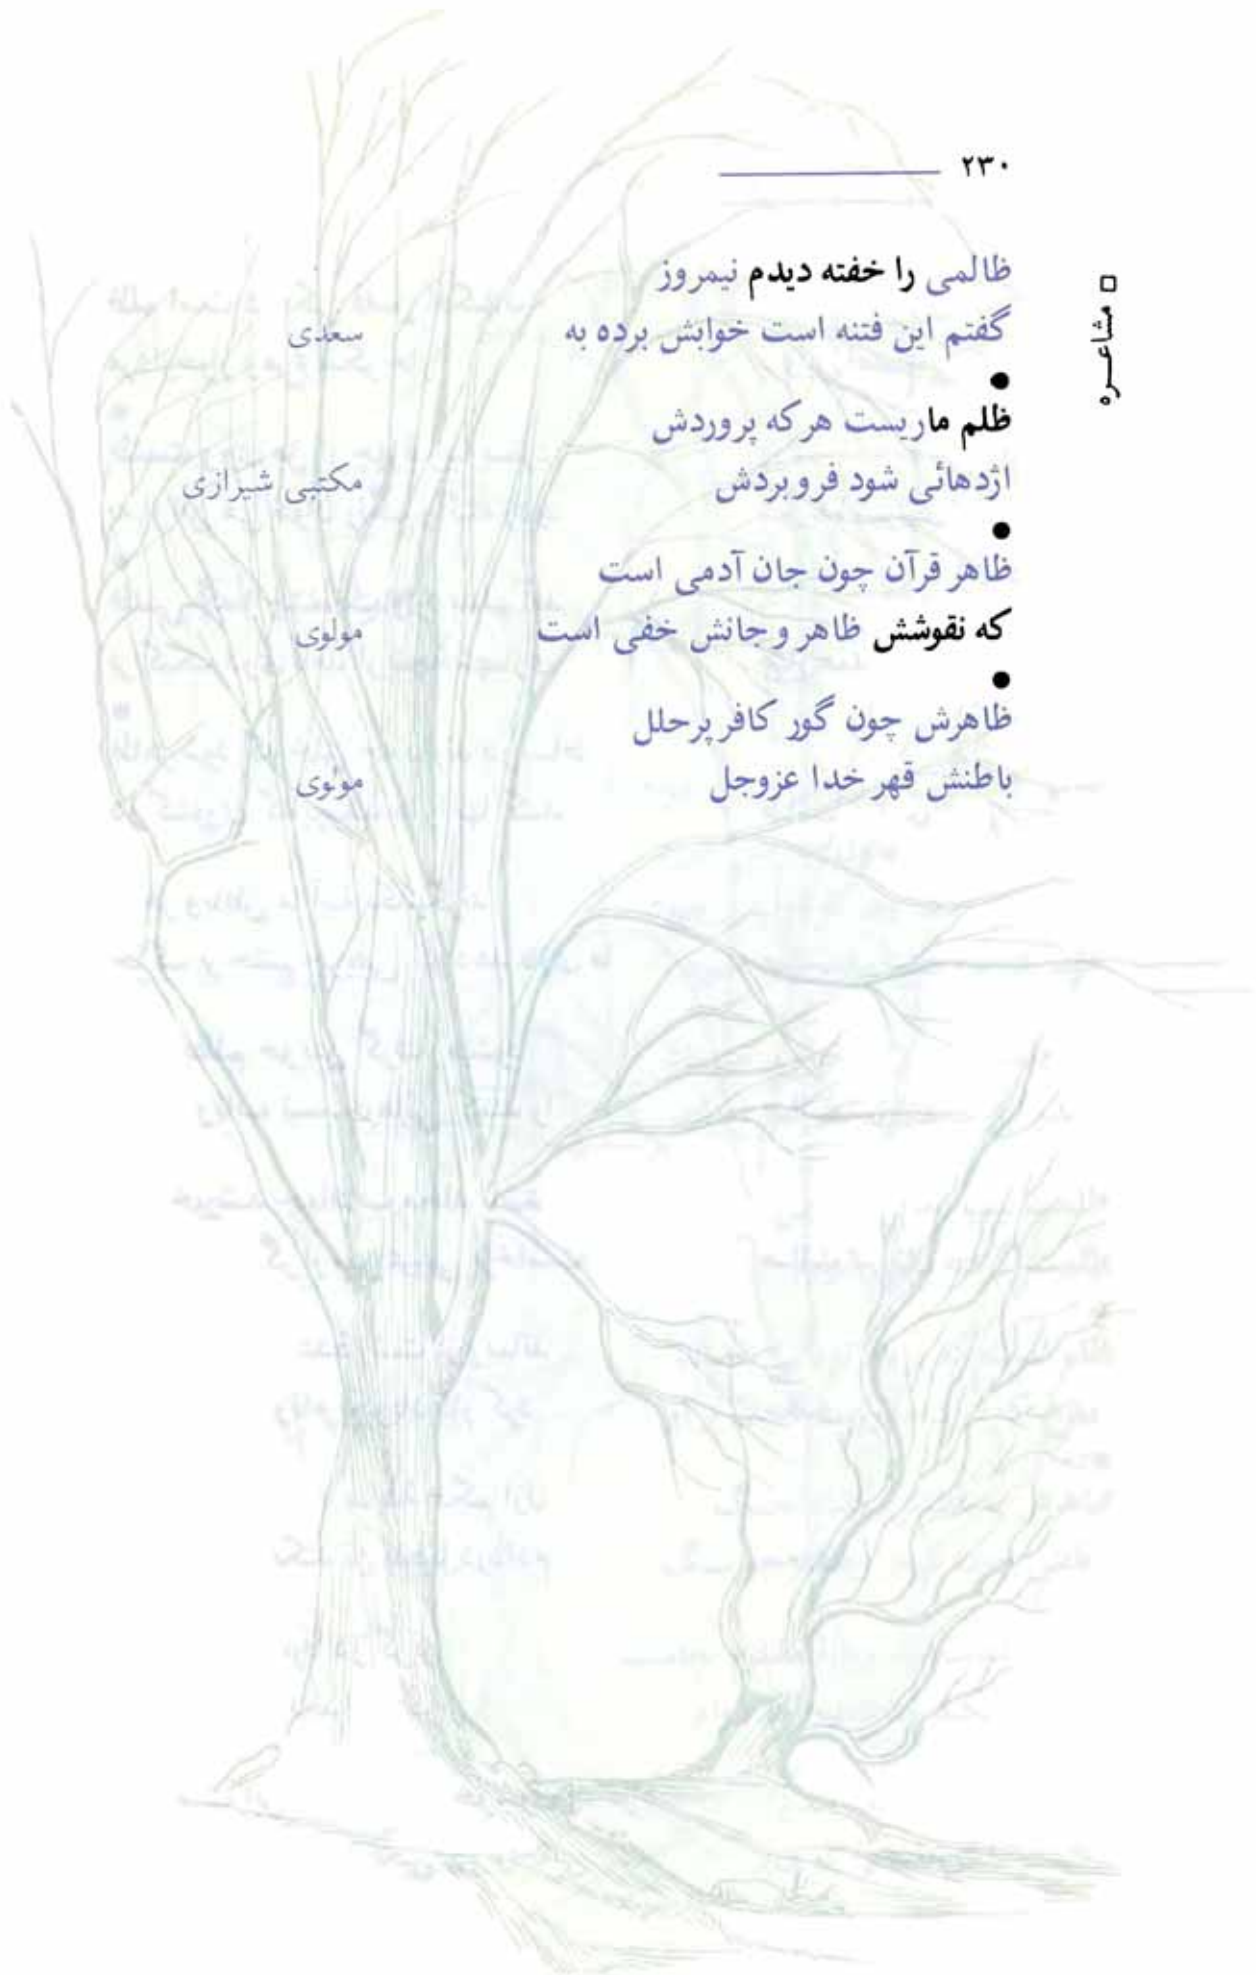 ۲۳۰
□ مشاعره
ظالمی را خفته دیدم نیمروز
گفتم این فتنه است خوابش برده به سعدی
●
ظلم ماریست هرکه پروردش
اژدهائی شود فروبردش مکتبی شیرازی
●
ظاهر قرآن چون جان آدمی است
که نقوشش ظاهر و جانش خفی است مولوی
●
ظاهرش چون گور کافر پرحلل
باطنش قهر خدا عزوجل مولوی